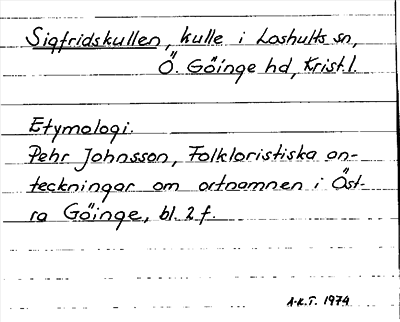 Sigfridskullen, kulle i Loshults sn,
Ö. Göinge hd, Krist. l.
Etymologi.
Pehr Johnsson, Folkloristiska an-
teckningar om ortnamnen i Öst-
ra Göinge, bl. 2 f.
A-K.T. 1974